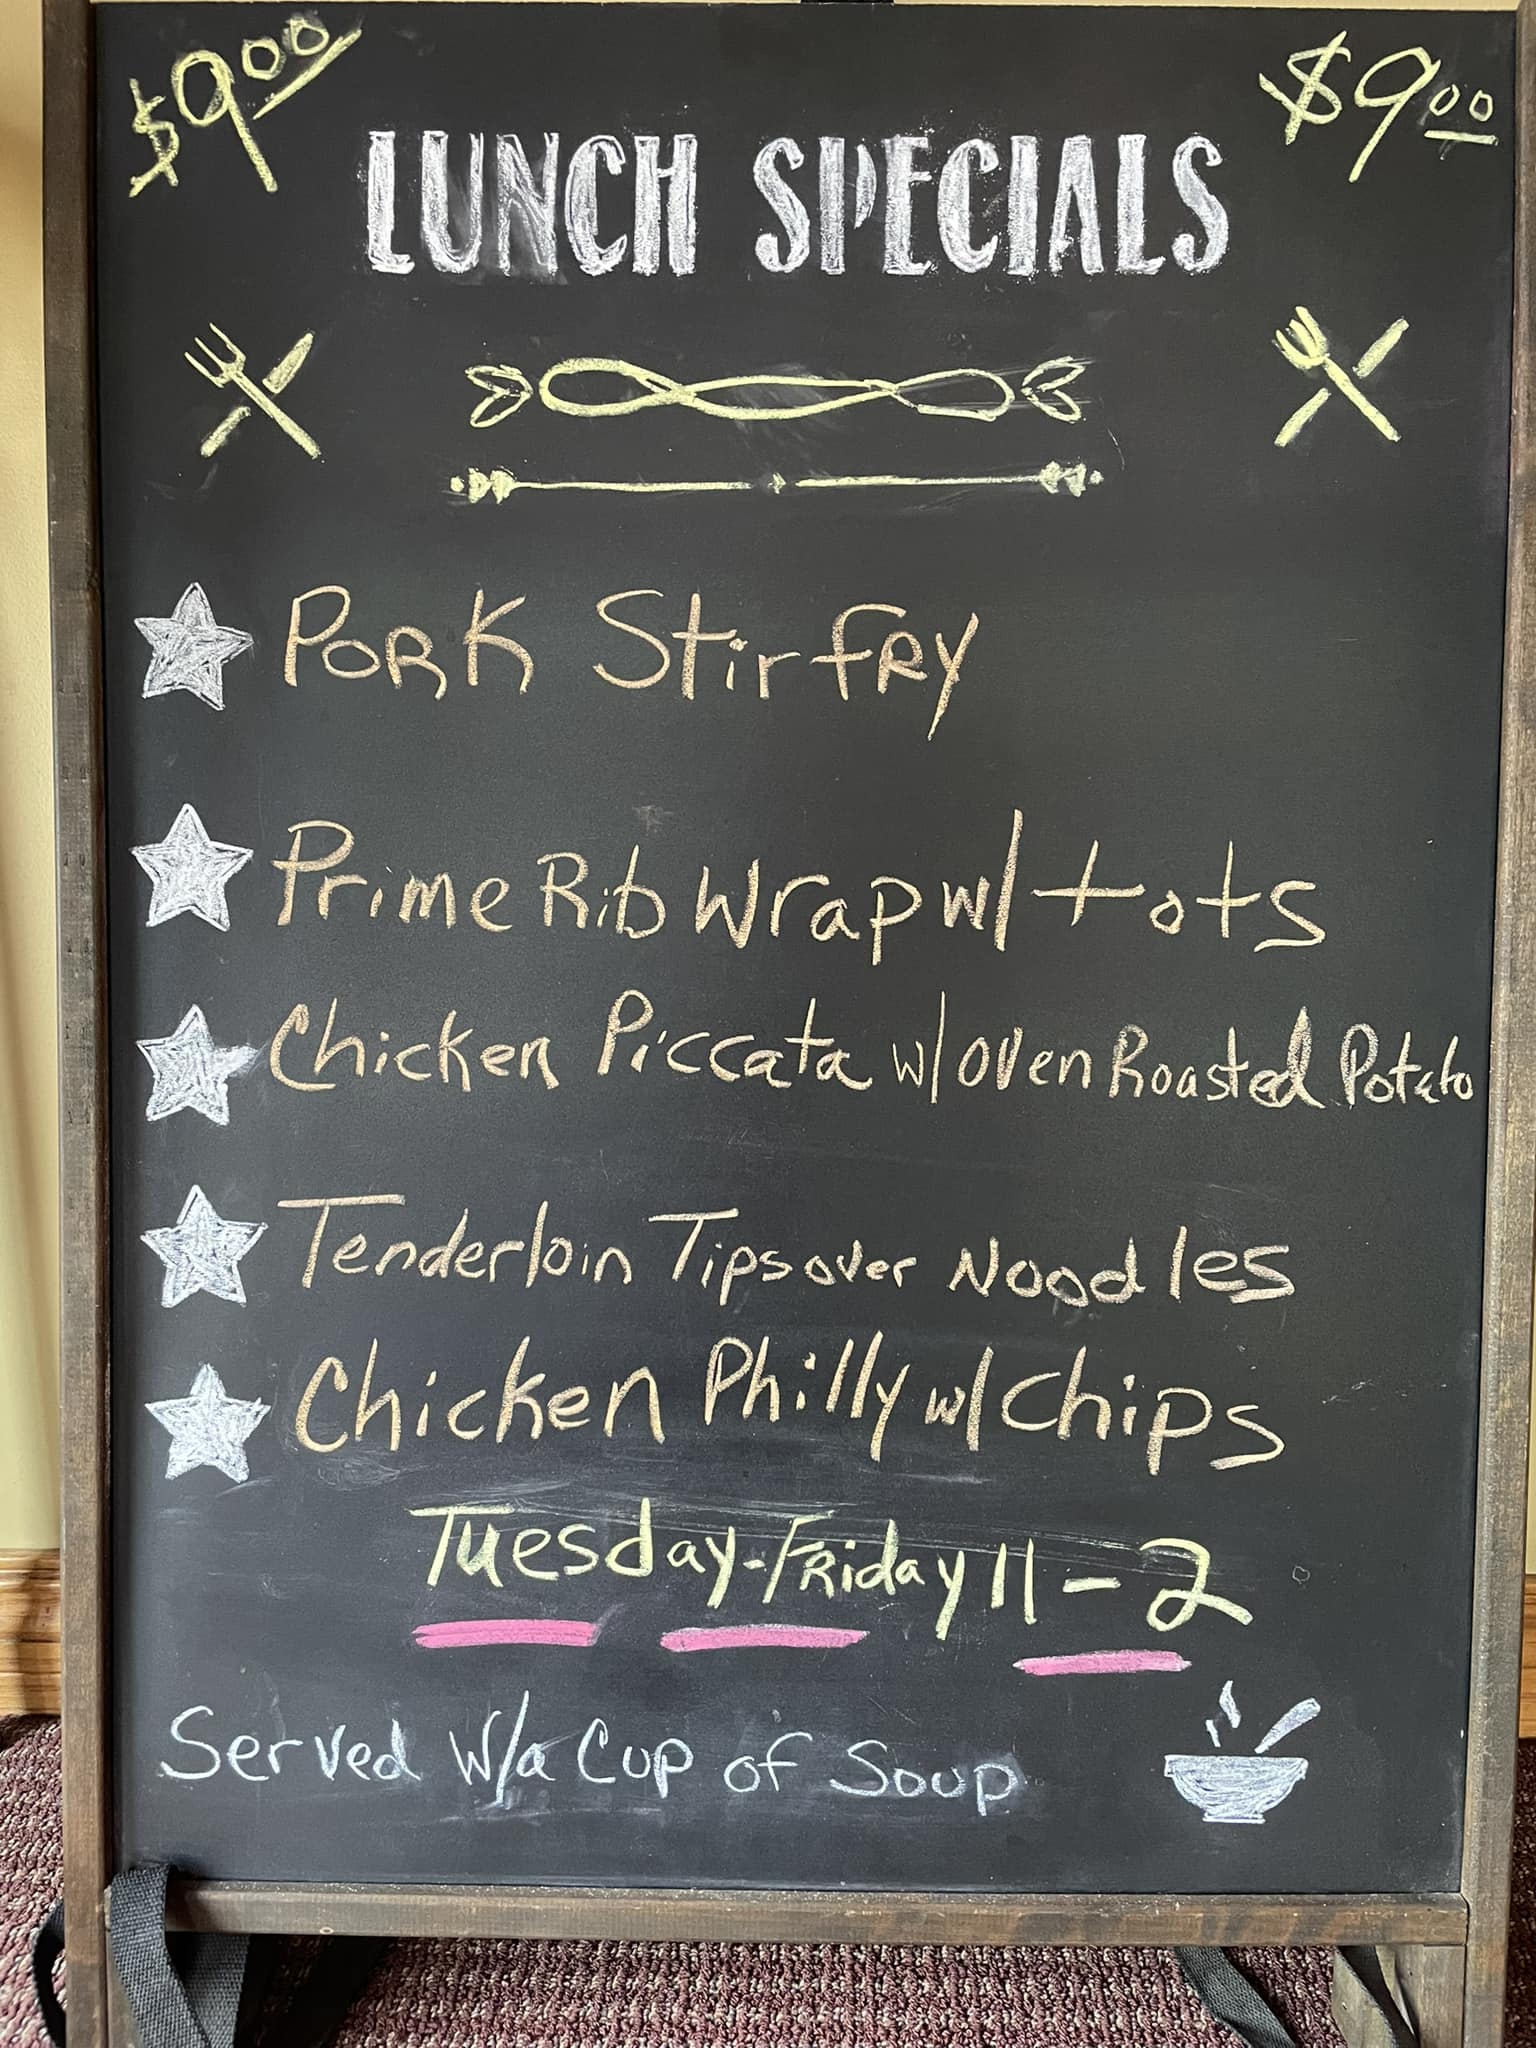 $9.00 $9.00
LUNCH SPECIALS
PORK StirfRY
Prime Rib Wrap w/ tots
Chicken Piccata w/ oven Roasted Potato
Tenderloin Tips over Noodles
Chicken Philly w/ Chips
Tuesday-FRiday 11-2
Served W/a Cup of Soup